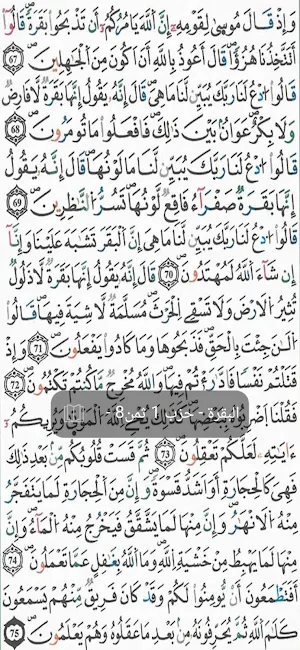 وَإِذْ قَالَ مُوسَىٰ لِقَوْمِهِ إِنَّ اللَّهَ يَأْمُرُكُمْ أَن تَذْبَحُوا بَقَرَةً قَالُوا
أَتَتَّخِذُنَا هُزُؤًا قَالَ أَعُوذُ بِاللَّهِ أَنْ أَكُونَ مِنَ الْجَاهِلِينَ 67
قَالُوا ادْعُ لَنَا رَبَّكَ يُبَيِّن لَّنَا مَا هِيَ قَالَ إِنَّهُ يَقُولُ إِنَّهَا بَقَرَةٌ لَّا فَارِضٌ
وَلَا بِكْرٌ عَوَانٌ بَيْنَ ذَٰلِكَ فَافْعَلُوا مَا تُومَرُونَ 68
قَالُوا ادْعُ لَنَا رَبَّكَ يُبَيِّن لَّنَا مَا لَوْنُهَا قَالَ إِنَّهُ يَقُولُ
إِنَّهَا بَقَرَةٌ صَفْرَاءُ فَاقِعٌ لَّوْنُهَا تَسُرُّ النَّاظِرِينَ 69
قَالُوا ادْعُ لَنَا رَبَّكَ يُبَيِّن لَّنَا مَا هِيَ إِنَّ الْبَقَرَ تَشَابَهَ عَلَيْنَا وَإِنَّا
إِن شَاءَ اللَّهُ لَمُهْتَدُونَ 70 قَالَ إِنَّهُ يَقُولُ إِنَّهَا بَقَرَةٌ لَّا ذَلُولٌ
تُثِيرُ الْأَرْضَ وَلَا تَسْقِي الْحَرْثَ مُسَلَّمَةٌ لَّا شِيَةَ فِيهَا قَالُوا
الْآنَ جِئْتَ بِالْحَقِّ فَذَبَحُوهَا وَمَا كَادُوا يَفْعَلُونَ 71 وَإِذْ
قَتَلْتُمْ نَفْسًا فَادَّارَأْتُمْ فِيهَا وَاللَّهُ مُخْرِجٌ مَّا كُنتُمْ تَكْتُمُونَ 72
فَقُلْنَا اضْرِبُوهُ بِبَعْضِهَا كَذَٰلِكَ يُحْيِ اللَّهُ الْمَوْتَىٰ وَيُرِيكُمْ
البقرة - حزب 1 ثمن 8 -
آيَاتِهِ لَعَلَّكُمْ تَعْقِلُونَ 73 ثُمَّ قَسَتْ قُلُوبُكُم مِّن بَعْدِ ذَٰلِكَ
فَهِيَ كَالْحِجَارَةِ أَوْ أَشَدُّ قَسْوَةً وَإِنَّ مِنَ الْحِجَارَةِ لَمَا يَتَفَجَّرُ
مِنْهُ الْأَنْهَارُ وَإِنَّ مِنْهَا لَمَا يَشَّقَّقُ فَيَخْرُجُ مِنْهُ الْمَاءُ وَإِنَّ
مِنْهَا لَمَا يَهْبِطُ مِنْ خَشْيَةِ اللَّهِ وَمَا اللَّهُ بِغَافِلٍ عَمَّا تَعْمَلُونَ 74
أَفَتَطْمَعُونَ أَن يُومِنُوا لَكُمْ وَقَدْ كَانَ فَرِيقٌ مِّنْهُمْ يَسْمَعُونَ
كَلَامَ اللَّهِ ثُمَّ يُحَرِّفُونَهُ مِن بَعْدِ مَا عَقَلُوهُ وَهُمْ يَعْلَمُونَ 75